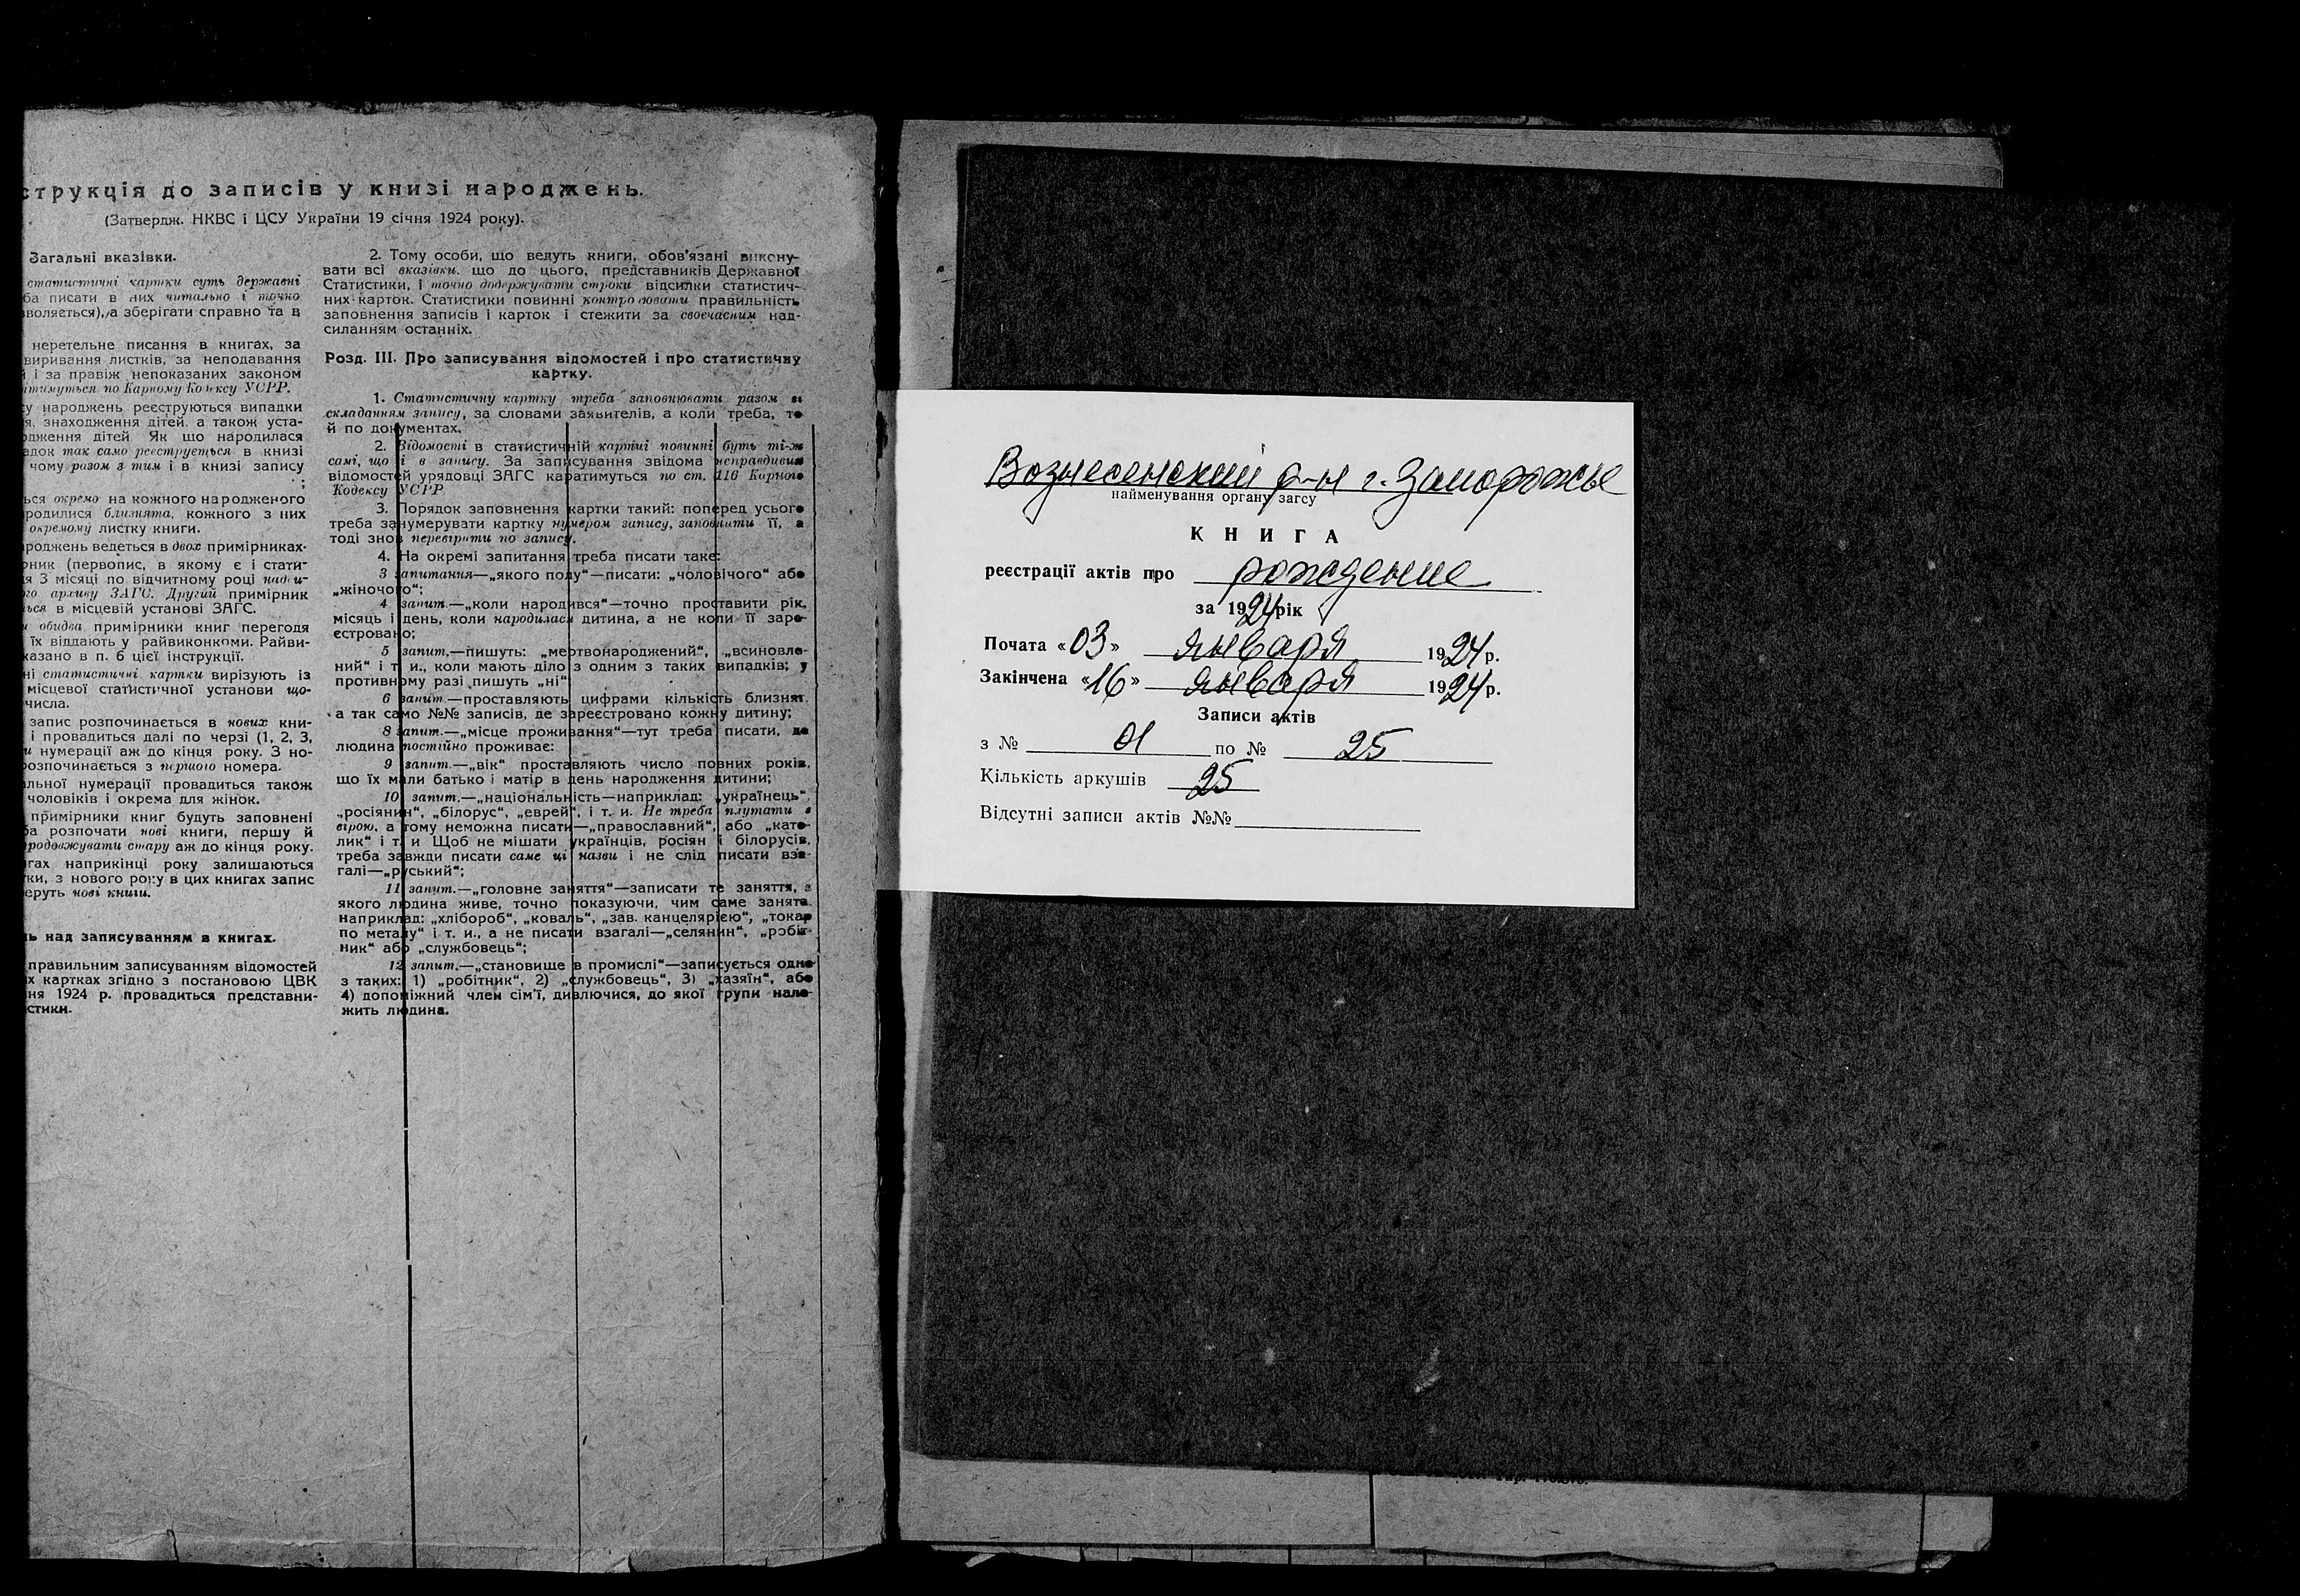 струкція до записів у книзі народжень.
(Затвердж. НКВС і ЦСУ України 19 січня 1924 року).
Загальні вказівки.
статистичні картки суть державні
ба писати в них читально і точно
воляється), а зберігати справно та в
неретельне писання в книгах, за
виривання листків, за неподавання
й і за правіж непоказаних законом
тимуться по Карному Кодексу УСРР.
у народжень реєструються випадки
я, знаходження дітей, а також уста-
дження дітей Як що народилася
адок так само реєструється в книзі
чому разом з тим і в книзі запису
;
ься окремо на кожного народженого
родилися близнята, кожного з них
окремому листку книги.
роджень ведеться в двох примірниках-
рник (первопис, в якому є і стати-
я 3 місяці по відчитному році
го архиву ЗАГС. Другий примірник
ься в місцевій установі ЗАГС.
и обидва примірники книг перегодя
їх віддають у райвиконкоми. Райви-
казано в п. 6 цієї інструкції.
ні статистичні картки вирізують із
місцевої статистичної установи що-
числа.
запис розпочинається в нових кни-
і провадиться далі по черзі (1, 2, 3,
и нумерації аж до кінця року. З но-
розпочинається з першого номера.
льної нумерації провадиться також
чоловіків і окрема для жінок.
примірники книг будуть заповнені
ба розпочати нові книги, першу й
родовжувати стару аж до кінця року.
гах наприкінці року залишаються
ки, з нового року в цих книгах запис
еруть нові книги.
ь над записуванням в книгах.
правильним записуванням відомостей
х картках згідно з постановою ЦВК
ня 1924 р. провадиться представни-
стики.
2. Тому особи, що ведуть книги, обов'язані викону-
вати всі вказівки, що до цього, представників Державної
Статистики, і точно додержувати строки відсилки статистич-
них карток. Статистики повинні контролювати правильність
заповнення записів і карток і стежити за своєчасним над-
силанням останніх.
Розд. III. Про записування відомостей і про статистичну
картку.
1. Статистичну картку треба заповнювати разом зі
складанням запису, за словами заявителів, а коли треба, то
й по документах.
2. Відомості в статистичній картці повинні буть ті-ж
самі, що і в запису. За записування звідома несправдивих
відомостей урядовці ЗАГС каратимуться по ст. 116 Карного
Кодексу УСРР
3. Порядок заповнення картки такий: поперед усього
треба занумерувати картку нумером запису, заповнити її, а
тоді знов перевірити по запису.
4. На окремі запитання треба писати таке:
3 запитання—„якого полу“—писати: „чоловічого“ або
„жіночого“;
4 запит.—„коли народився“—точно проставити рік,
місяць і день, коли народилася дитина, а не коли її заре-
єстровано;
5 запит.—пишуть: „мертвонароджений“, „всиновле-
ний“ і т. и., коли мають діло з одним з таких випадків; у
противному разі пишуть „ні“
6 запит.—проставляють цифрами кількість близнят,
а так само №№ записів, де зареєстровано кожну дитину;
8 запит.—„місце проживання“—тут треба писати, де
людина постійно проживає:
9 запит.—„вік“ проставляють число повних років,
що їх мали батько і матір в день народження дитини;
10 запит.—„національність—наприклад: „українець“,
„росіянин“, „білорус“, „еврей“, і т. и. Не треба плутати з
вірою, а тому неможна писати—„православний“, або „като-
лик“ і т. и Щоб не мішати українців, росіян і білорусів,
треба завжди писати саме ці назви і не слід писати вза-
галі—„руський“;
11 запит.—„головне заняття“—записати те заняття, з
якого людина живе, точно показуючи, чим саме занята,
наприклад: „хлібороб“, „коваль“, „зав. канцелярією“, „токар
по металу“ і т. и., а не писати взагалі—„селянин“, „робіт-
ник“ або „службовець“;
12 запит.—„становище в промислі“—записується одно
з таких: 1) „робітник“, 2) „службовець“, 3) „хазяїн“, або
4) допоміжний член сім'ї, дивлючися, до якої групи нале-
жить людина.
Вознесенский р-н г. Запорожье
найменування органу загсу
КНИГА
реєстрації актів про рождение
за 1924 рік
Почата «03» января 1924 р.
Закінчена «16» января 1924 р.
Записи актів
з № 01 по № 25
Кількість аркушів 25
Відсутні записи актів №№